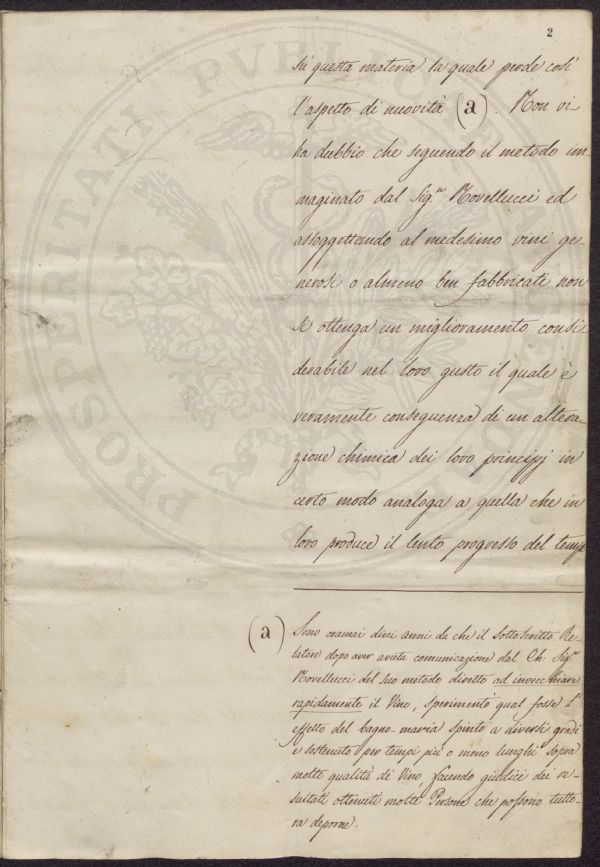 2
su questa materia la quale perde così
l'aspetto di nuovità (a). Non vi
ha dubbio che seguendo il metodo im-
maginato dal Sig.re Novellucci ed
assoggettando al medesimo vini ge-
nerosi o almeno ben fabbricati non
si ottenga un miglioramento consi
derabile nel loro gusto il quale è
veramente conseguenza di un altera-
zione chimica dei loro principj in
certo modo analoga a quella che in
loro produce il lento progresso del tempo
(a) Sono oramai dieci anni da che il sottoscritto Re-
latore dopo aver avuta comunicazione dal Ch. Sig.re
Novellucci del suo metodo diretto ad invecchiare
rapidamente il Vino, sperimentò qual fosse l'
effetto del bagno-maria spinto a diversi gradi
e sostenuto per tempi più o meno lunghi sopra
molte qualità di Vino, facendo giudici dei re-
sultati ottenuti molte Persone che possono tutto-
ra deporne.
PROSPERITATI PVBL